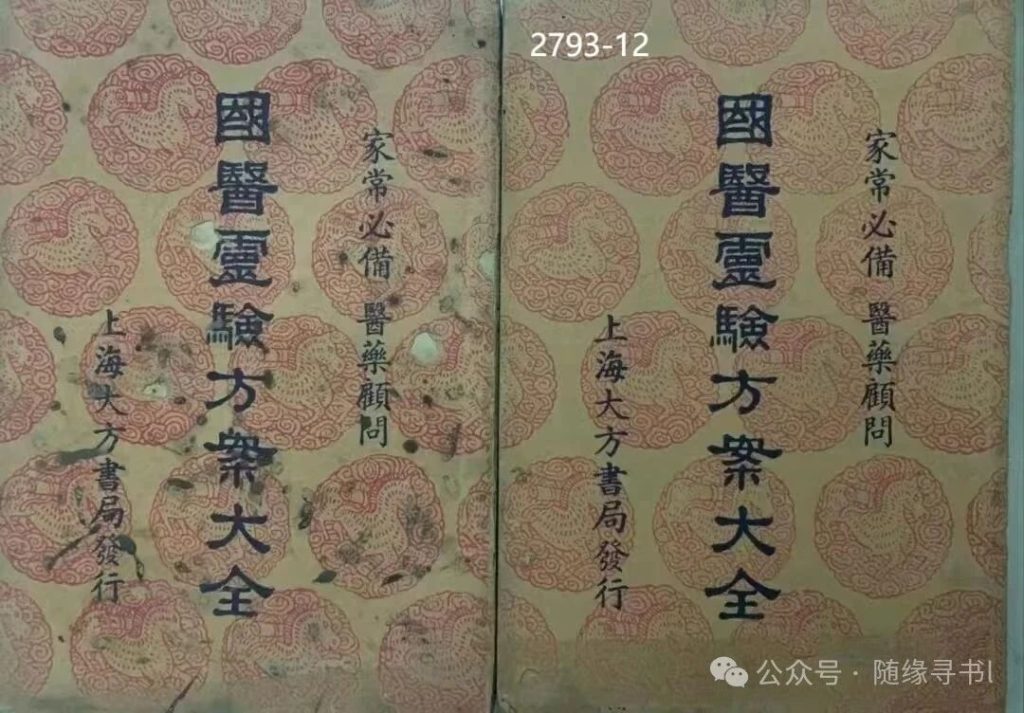 2793-12
家常必備 醫藥顧問
國醫靈驗方案大全
上海大方書局發行
家常必備 醫藥顧問
國醫靈驗方案大全
上海大方書局發行
公众号·随缘寻书l